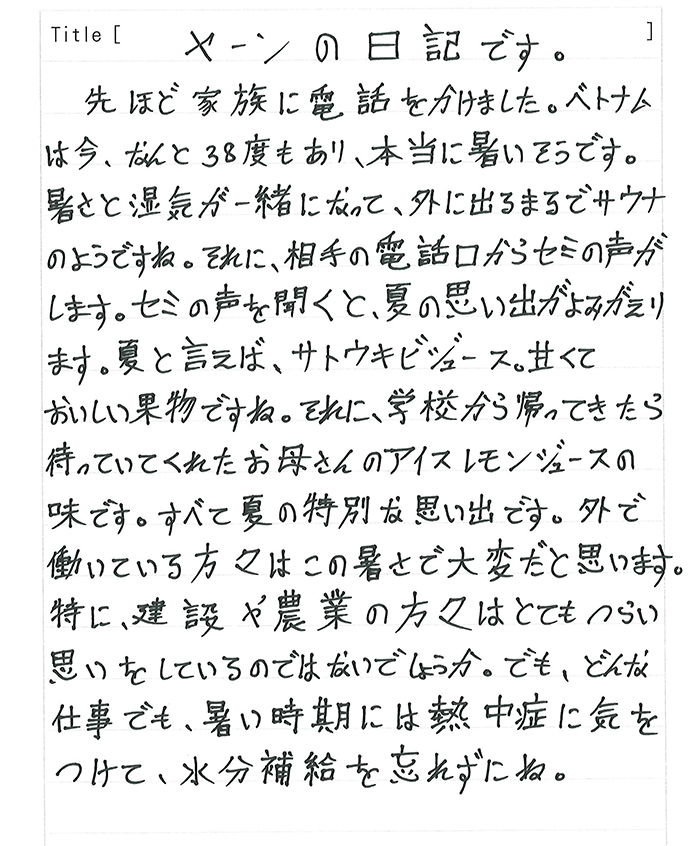 Title [ ヤーンの日記です。 ]
先ほど家族に電話をかけました。ベトナム
は今、なんと38度もあり、本当に暑いそうです。
暑さと湿気が一緒になって、外に出るまるでサウナ
のようですね。それに、相手の電話口からセミの声が
します。セミの声を聞くと、夏の思い出がよみがえり
ます。夏と言えば、サトウキビジュース。甘くて
おいしい果物ですね。それに、学校から帰ってきたら
待っていてくれたお母さんのアイスレモンジュースの
味です。すべて夏の特別な思い出です。外で
働いている方々はこの暑さで大変だと思います。
特に、建設や農業の方々はとてもつらい
思いをしているのではないでしょうか。でも、どんな
仕事でも、暑い時期には熱中症に気を
つけて、水分補給を忘れずにね。